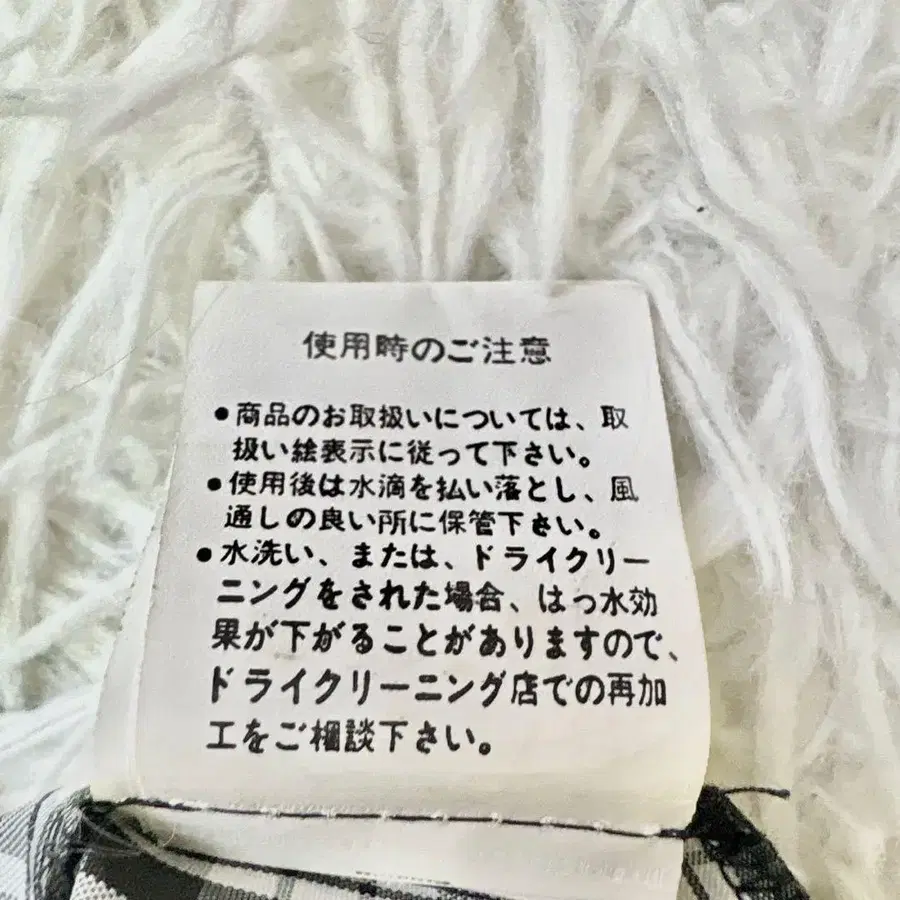 使用時のご注意
●商品のお取扱いについては、取
扱い絵表示に従って下さい。
●使用後は水滴を払い落とし、風
通しの良い所に保管下さい。
●水洗い、または、ドライクリー
ニングをされた場合、はっ水効
果が下がることがありますので、
ドライクリーニング店での再加
工をご相談下さい。